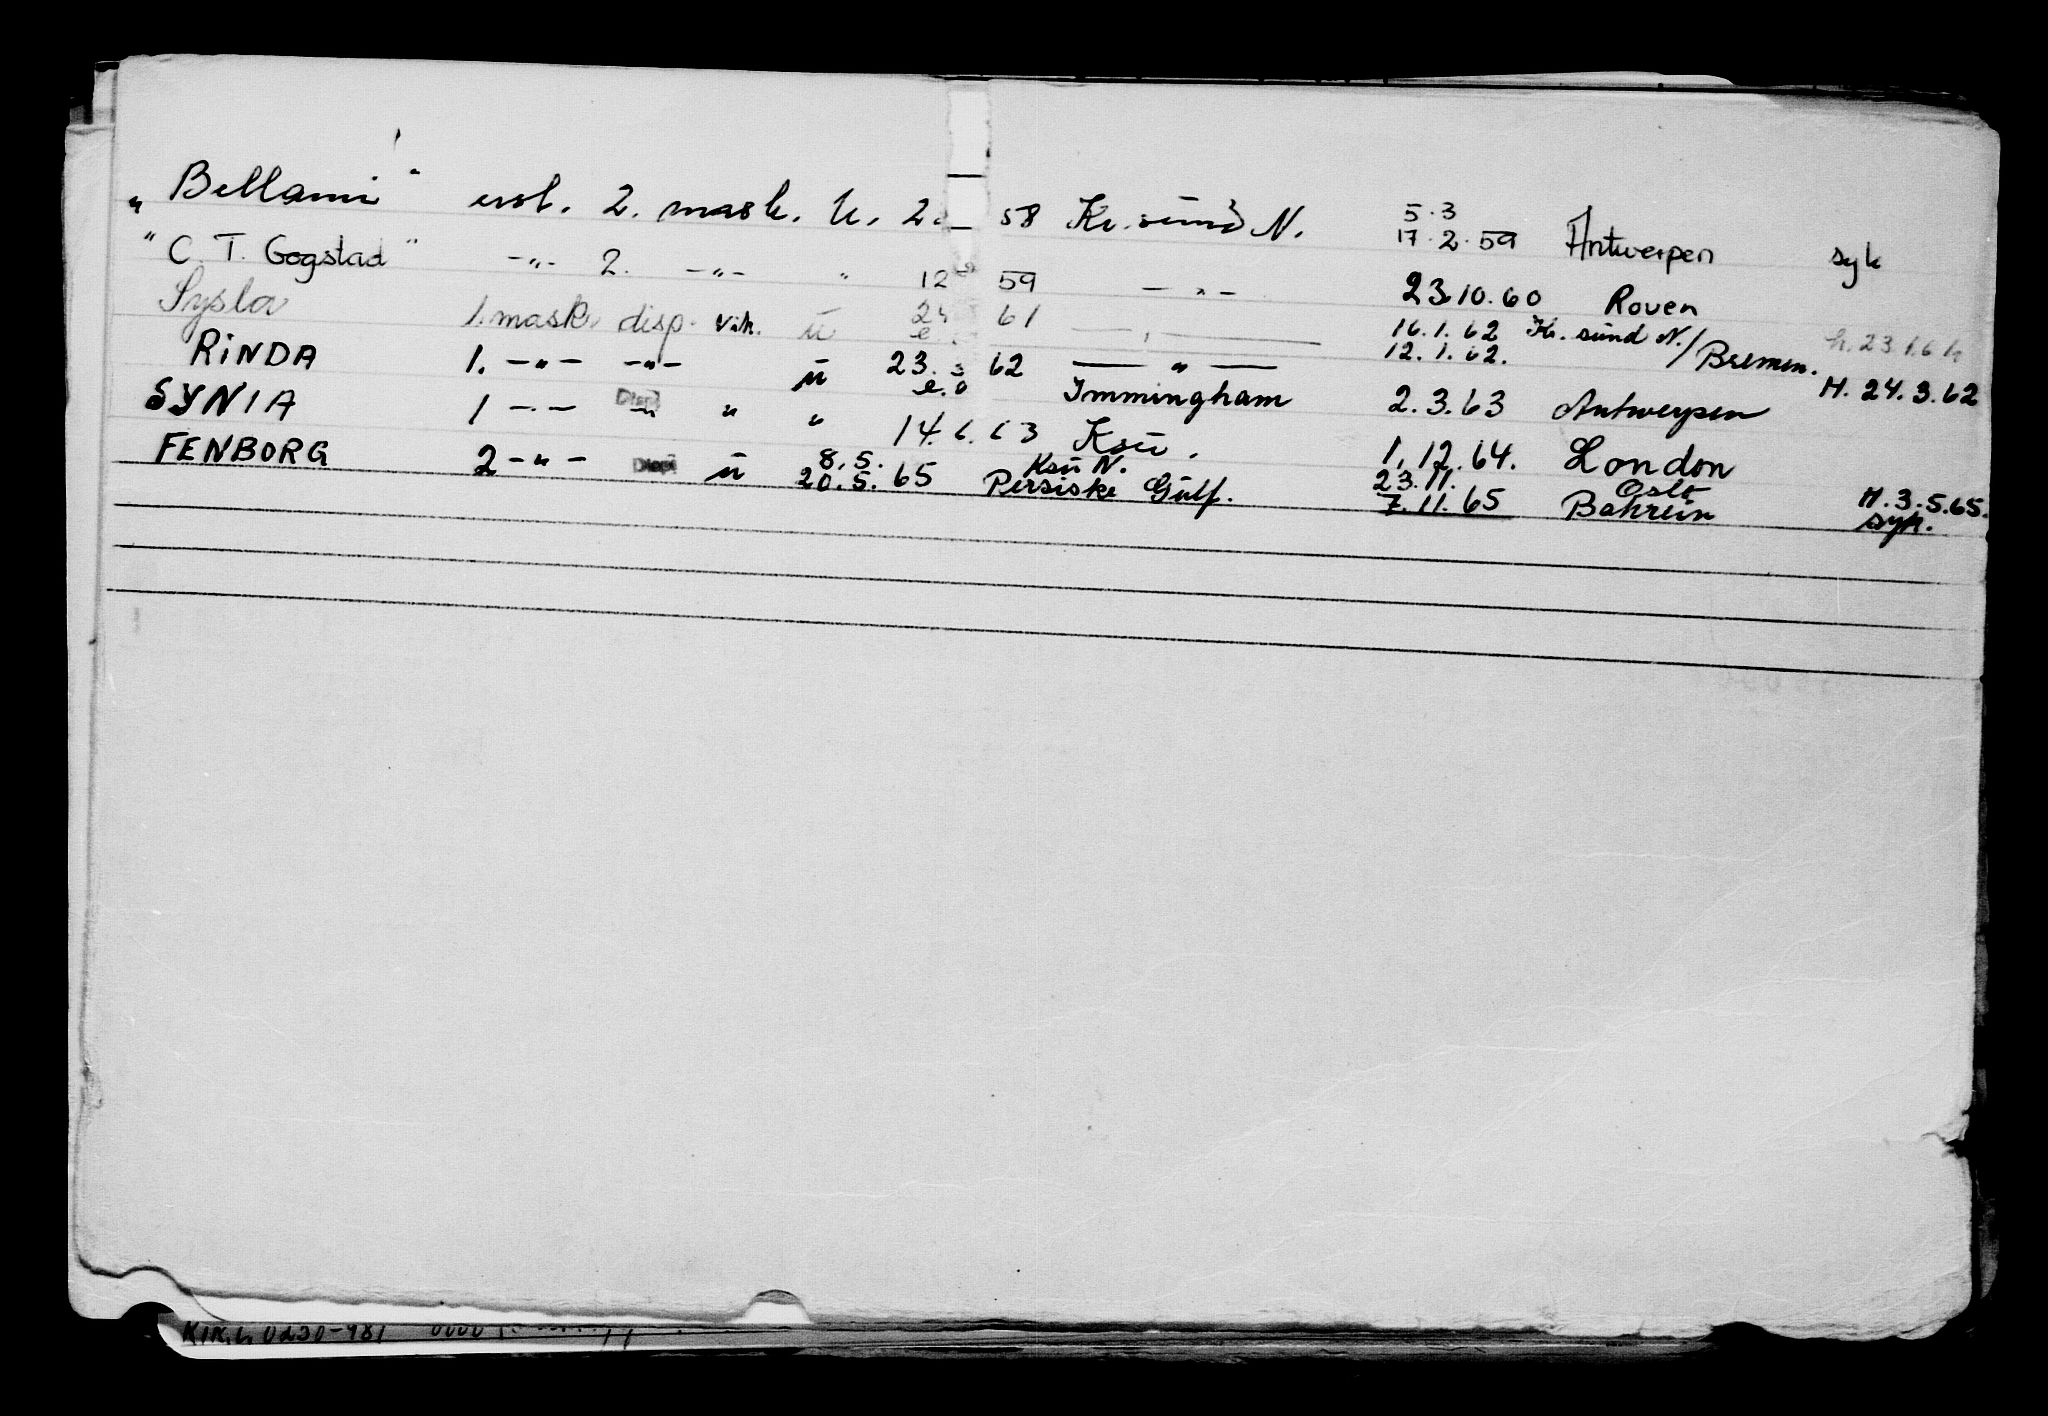 „ Bellami " 2. mask. U. 2 58 Kr. sund N. 5.3 17.2.59 Antwerpen syk
" C. T. Gogstad " -"- 2. -"- " 12 59 -"- 23.10.60 Rouen
Sysla 1. mask. disp. vik. u 61 -"- 16.1.62 Kr. sund N./Bremen. 12.1.62.
RINDA 1. -"- -"- u 23. 3 62 -"- Immingham 2.3.63 Antwerpen H. 24.3.62
SYNIA 1 -"- Disp " " 14.6.63 Ksu. 1.12.64. London
FENBORG 2 -"- Disp u 8.5. 20.5.65 Ksu N. Persiske Gulf. 23.11. 7.11.65 Oslo Bahrein H. 3.5.65. syk.